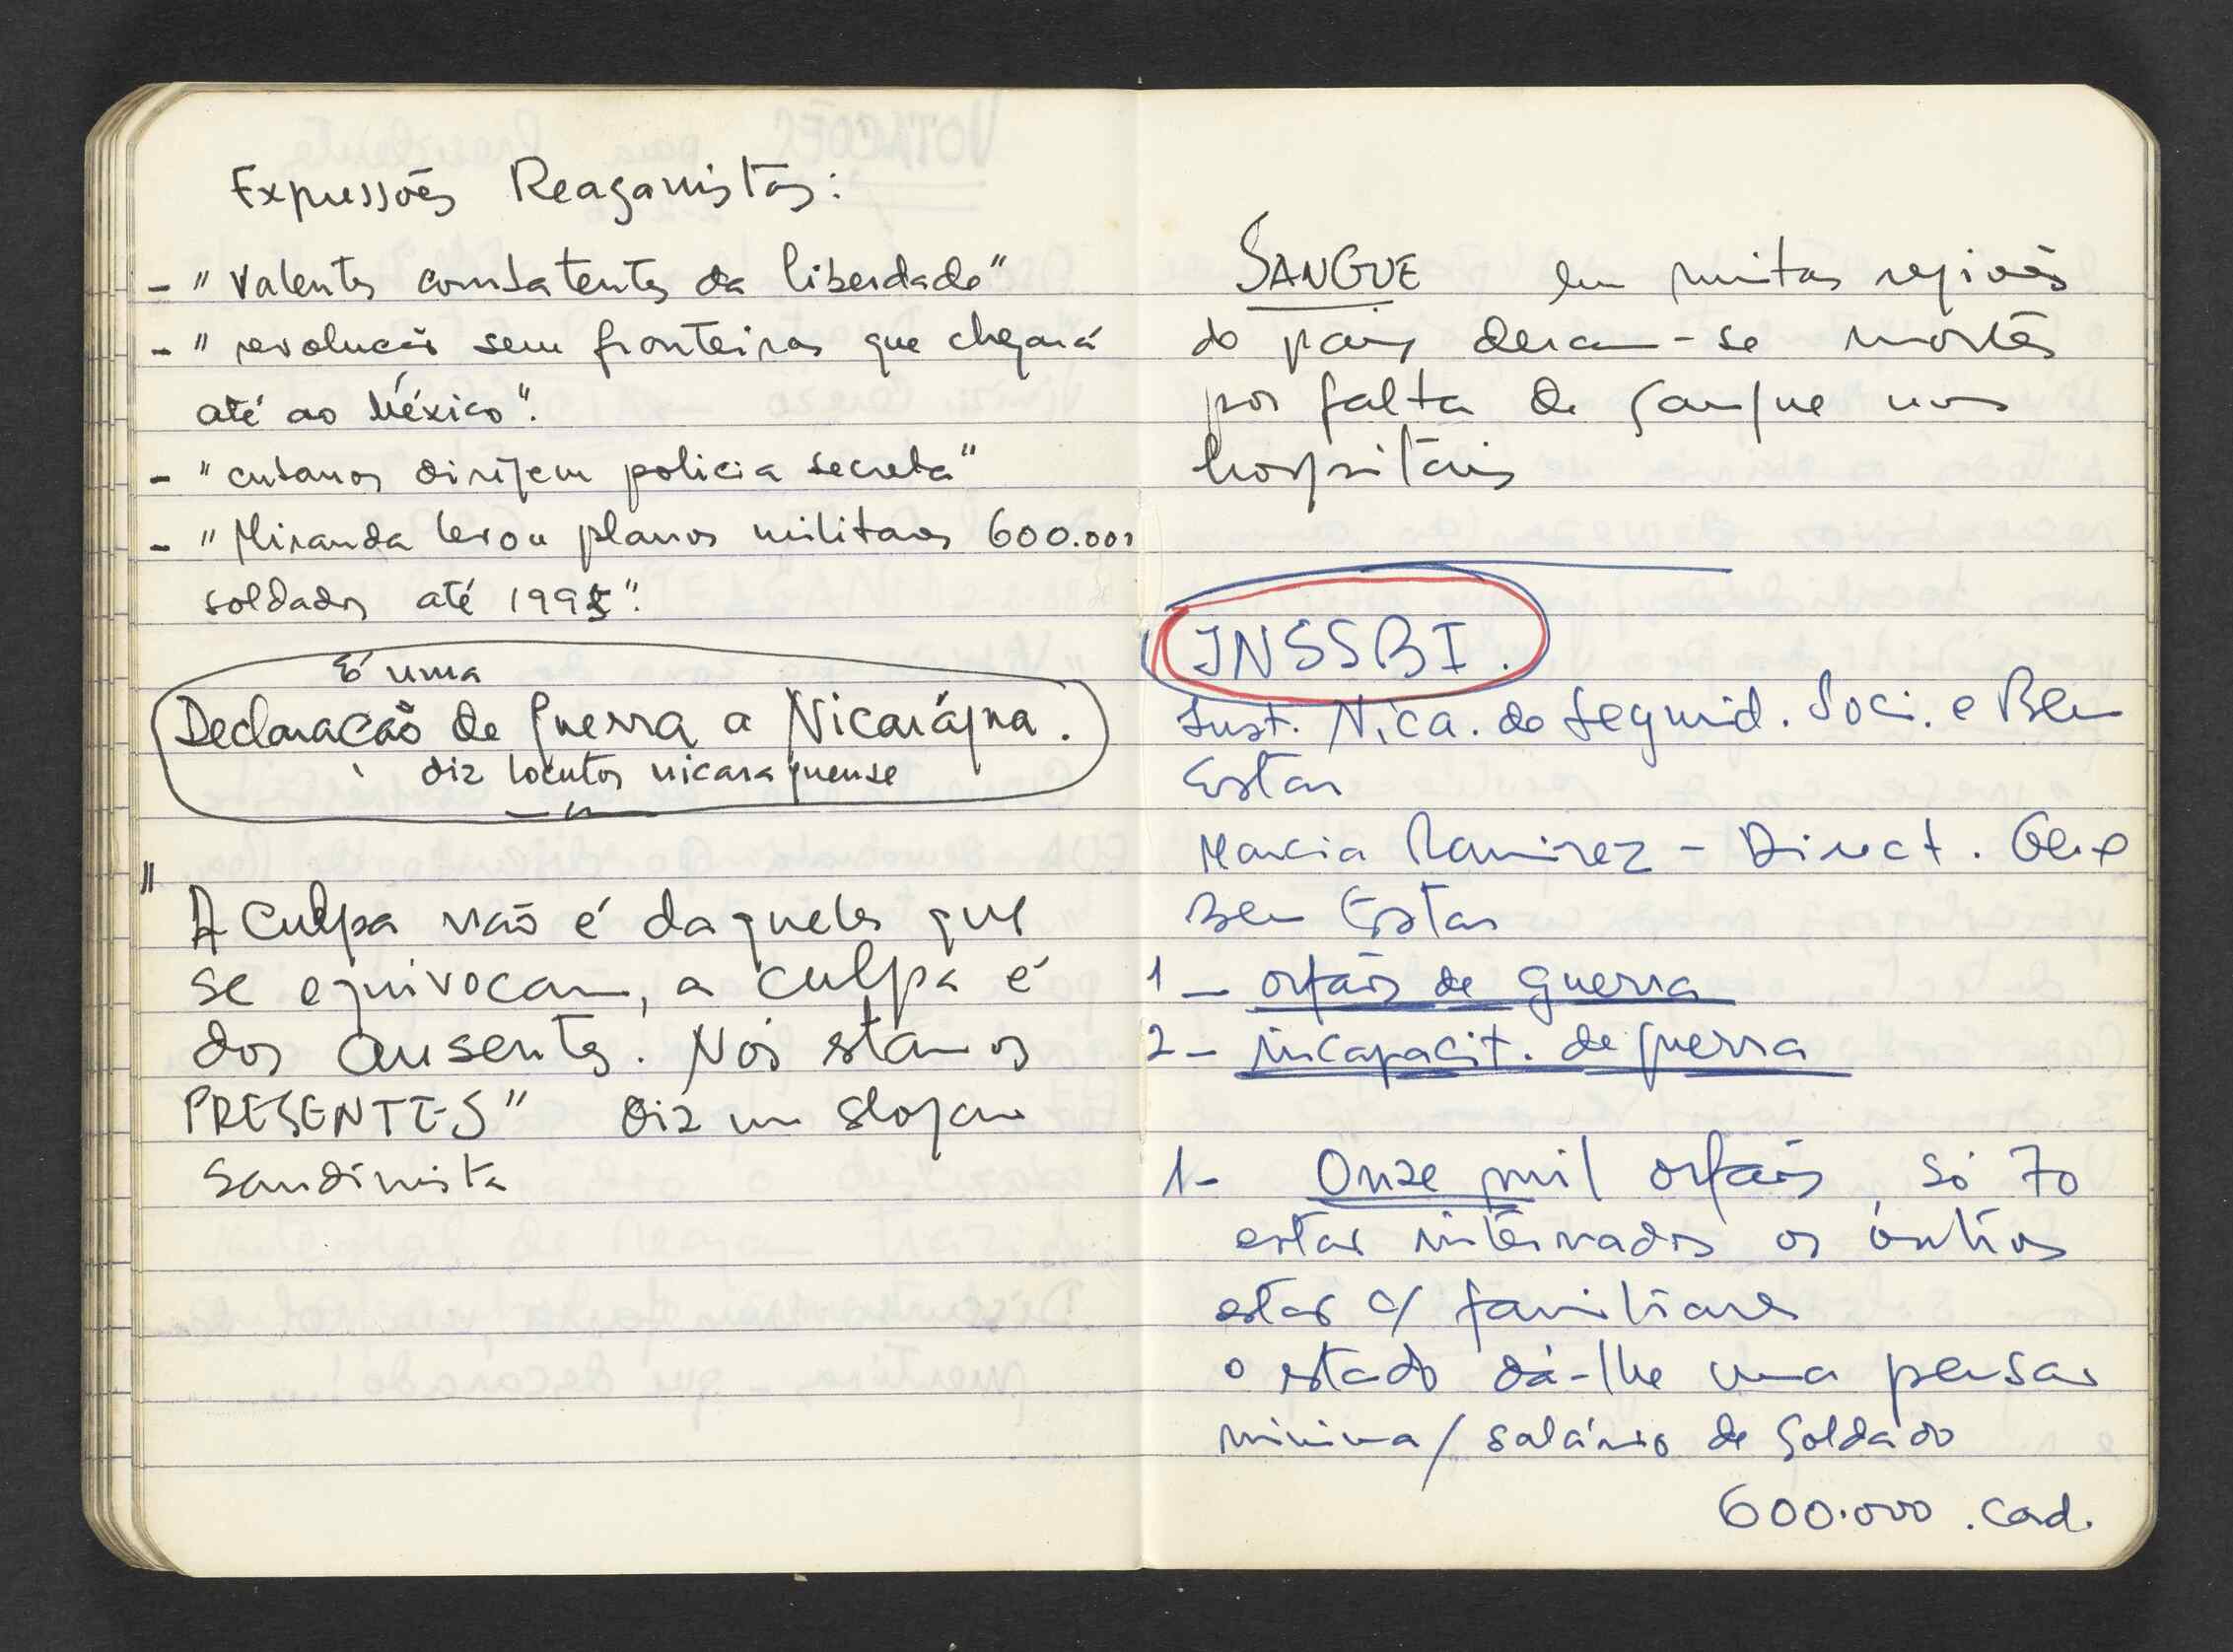 Expressões Reaganistas:
- "Valentes combatentes da liberdade"
- " revolução sem fronteiras que chegará
até ao México".
- "cubanos dirijem policia secreta"
- "Miranda levou planos militares 600.000
soldados até 1995".
É uma
Declaração de guerra a Nicarágua.
diz locutor nicaraguense
"
A culpa não é daqueles que
se equivocam, a culpa é
dos ausentes. Nós stamos
PRESENTES" diz um slogan
sandinista
SANGUE em muitas regiões
do pais deram-se mortes
por falta de sangue nos
hospitais
INSSBI.
Inst. Nica. de Segurid. Soci. e Bem
Estar
Marcia Ramirez - Direct.
Bem Estar
1 - orfãos de guerra
2 - incapacit. de guerra
1- Onze mil orfãos, só 70
estão internados os outros
estão c/ familiares
o estado dá-lhe uma pensão
minima/salário de soldado
600.000 . cod.